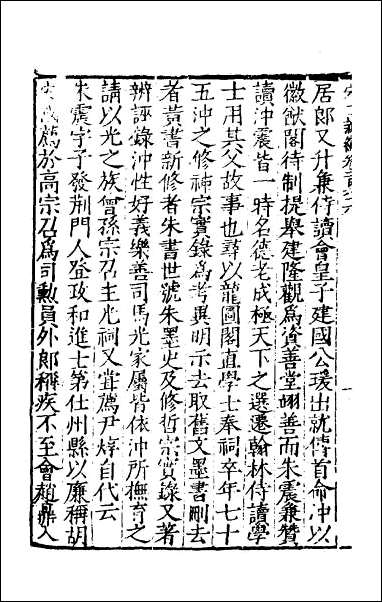 居郎又升兼侍讀會皇子建國公瑗出就傅首命冲以
徽猷閣待制提舉建隆觀爲資善堂翊善而朱震兼贊
讀冲震皆一時名德老成極天下之選遷翰林侍讀學
士用其父故事也尋以龍圖閣直學士奉祠卒年七十
五冲之修神宗實錄爲考異明示去取舊文墨書刪去
者黃書新修者朱書世號朱墨史及修哲宗實錄又著
辨誣錄冲性好義樂善司馬光家屬皆依冲所撫育之
請以光之族曾孫宗召主光祠又嘗薦尹焞自代云
朱震字子發荊門人登政和進士第仕州縣以廉稱胡
安國薦於高宗召爲司勲員外郎稱疾不至會趙鼎入